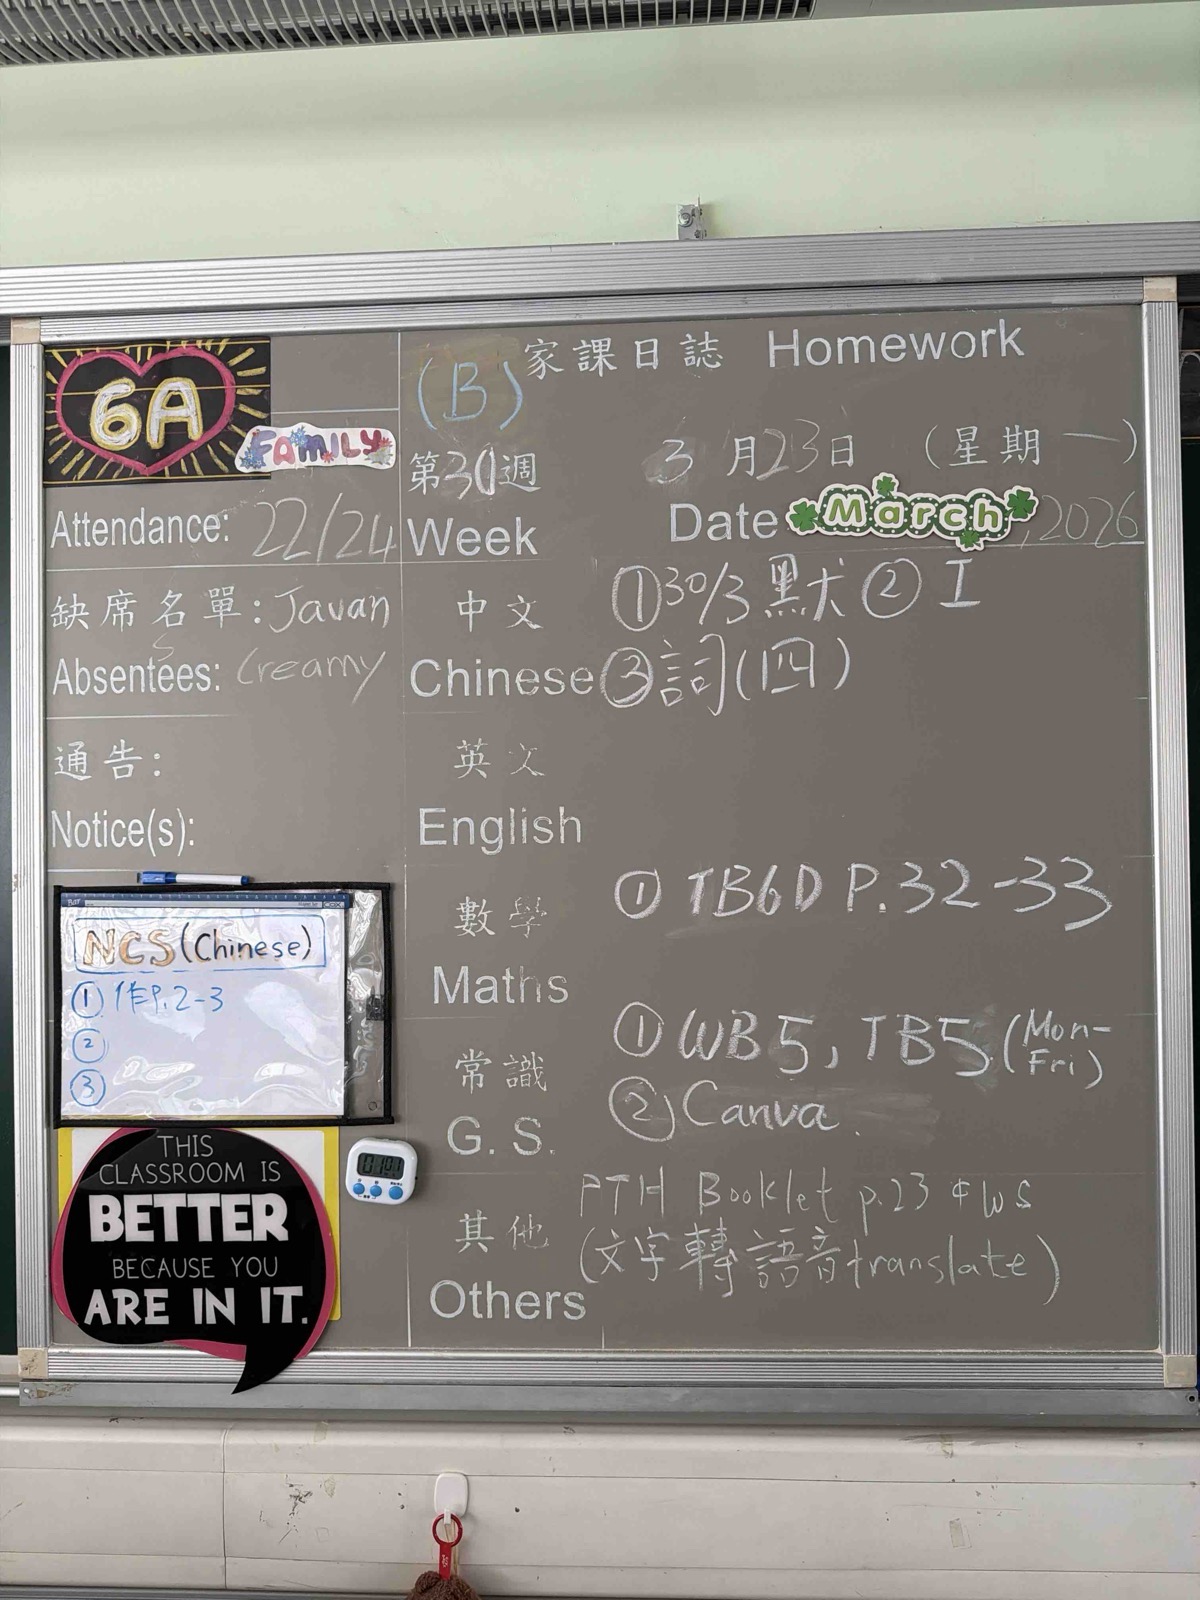 6A
FAMILY
(B) 家課日誌 Homework
第30週 3月23日 (星期一)
Week Date March ,2026
Attendance: 22/24
缺席名單: Javan
Absentees: Creamy
s
通告:
Notice(s):
中文 ①30/3 默 ② I
Chinese ③詞(四)
英文
English
數學 ① TB6D P.32-33
Maths
常識 ① WB 5, TB5 (Mon-Fri)
G.S. ② Canva
其他 PTH Booklet p.23 + WS
(文字轉語音translate)
Others
NCS (Chinese)
① 作P.2-3
②
③
THIS
CLASSROOM IS
BETTER
BECAUSE YOU
ARE IN IT.